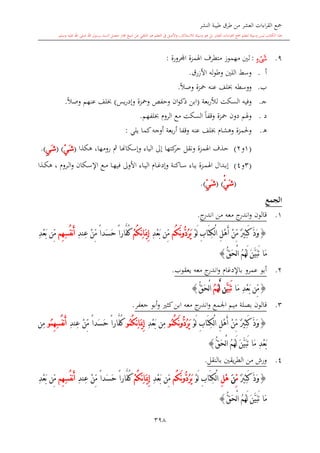 جمع القراءات العشر من طرق طيبة النشر
٩. شَيْءٍ : لين مهموز متطرف الهمزة المجرورة :
أ . وسط اللين وطوله الأزرق.
ب. ووسطه بخلف عنه حمزة وصلاً.
جـ. وفيه السكت للأربعة (ابن ذكوان وحفص وحمزة وإدريس) بخلف عنهم وصلاً.
د . ولهم دون حمزة وقفاً السكت مع الروم بخلفهم.
هـ. ولحمزة وهشام بخلف عنه وقفاً أربعة أوجه كما يلي :
(١و٢) حذف الهمزة ونقل حركتها إلى الياء وإسكانها ثم رومها، هكذا (شَيْ) (شَيِ).
(٣و٤) إبدال الهمزة ياء ساكنة وإدغام الياء الأولى فيها مع الإسكان والروم ، هكذا
(شَيّْ) (شَيِّ).
الجمع
١. قالون واندرج معه من اندرج.
﴿ وَدَّ كَثِيرٌ مِّنْ أَهْلِ الْكِتَابِ لَوْ يَرُدُّونَكُم مِّن بَعْدِ إِيمَانِكُمْ كُفَّاراً حَسَداً مِّنْ عِندِ أَنفُسِهِم مِّن بَعْدِ
مَا تَبَيَّنَ لَهُمُ الْحَقُّ ﴾
٢. أبو عمرو بالإدغام واندرج معه يعقوب.
﴿ مِّن بَعْدِ مَا تَبَيَّن لَّهُمُ الْحَقُّ ﴾
٣. قالون بصلة ميم الجمع واندرج معه ابن كثير وأبو جعفر.
﴿ وَدَّ كَثِيرٌ مِّنْ أَهْلِ الْكِتَابِ لَوْ يَرُدُّونَكُمُو مِّن بَعْدِ إِيمَانِكُمُو كُفَّاراً حَسَداً مِّنْ عِندِ أَنفُسِهِمُو مِّن
بَعْدِ مَا تَبَيَّنَ لَهُمُ الْحَقُّ ﴾
٤. ورش من الطريقين بالنقل.
﴿ وَدَّ كَثِيرٌ مِّنَ هْلِ الْكِتَابِ لَوْ يَرُدُّونَكُم مِّن بَعْدِ إِيمَانِكُمْ كُفَّاراً حَسَداً مِّنْ عِندِ أَنفُسِهِم مِّن بَعْدِ
مَا تَبَيَّنَ لَهُمُ الْحَقُّ ﴾
٣٢٨